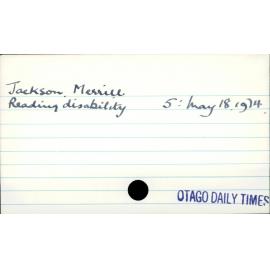 Jackson, Merrill
Reading disability 5: May 18.1974.
OTAGO DAILY TIMES